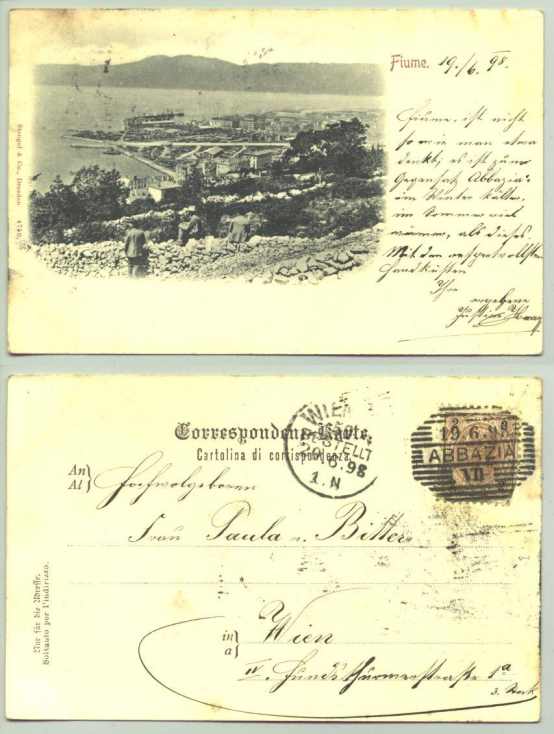 Stengel & Co., Dresden
Fiume. 19./6. 98.
Fiume ist nicht
so wie man etwa
denkt; es ist zum
Gegensatz Abbazia's
im Winter kälter,
im Sommer viel
wärmer, als dieses.
Mit den respectvollsten
Handküssen
Ihr
ergebener
Correspondenz-Karte.
Cartolina di corrispondenza
WIEN
BESTELLT
20.6.98
1.N
19.6.98
ABBAZIA
An
Al
Hochwolgeboren
Frau Paula v. Bitter
in
a
Wien
IV. Hundsthurmerstraße 1a
3. Stock
Nur für die Adresse.
Soltanto per l'indirizzo.